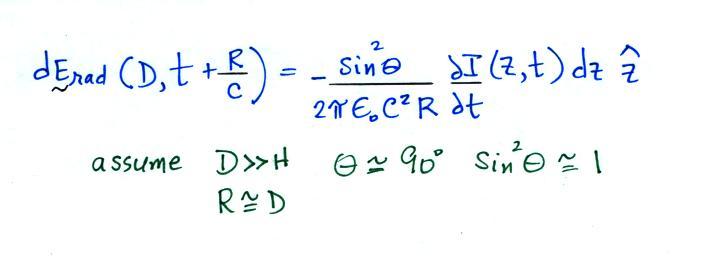 dE_rad (D, t + R/C) = - sin²θ / 2πϵ₀C²R ∂I/∂t (z,t) dz ẑ
assume D>>H θ ≃ 90° sin²θ ≃ 1
R ≅ D